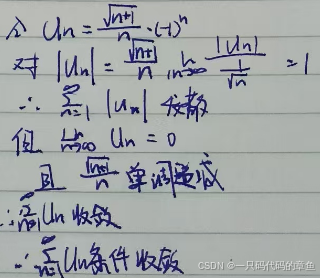 令 Un = √(n+1)/n ·(-1)^n
对 |Un| = √(n+1)/n lim n→∞ |Un| / (1/√n) = 1
∴ ∞∑n=1 |Un| 发散
但 lim n→∞ Un = 0
且 √(n+1)/n 单调递减
∴ ∞∑n=1 Un 收敛
∴ ∞∑n=1 Un条件收敛
CSDN @一只码代码的章鱼